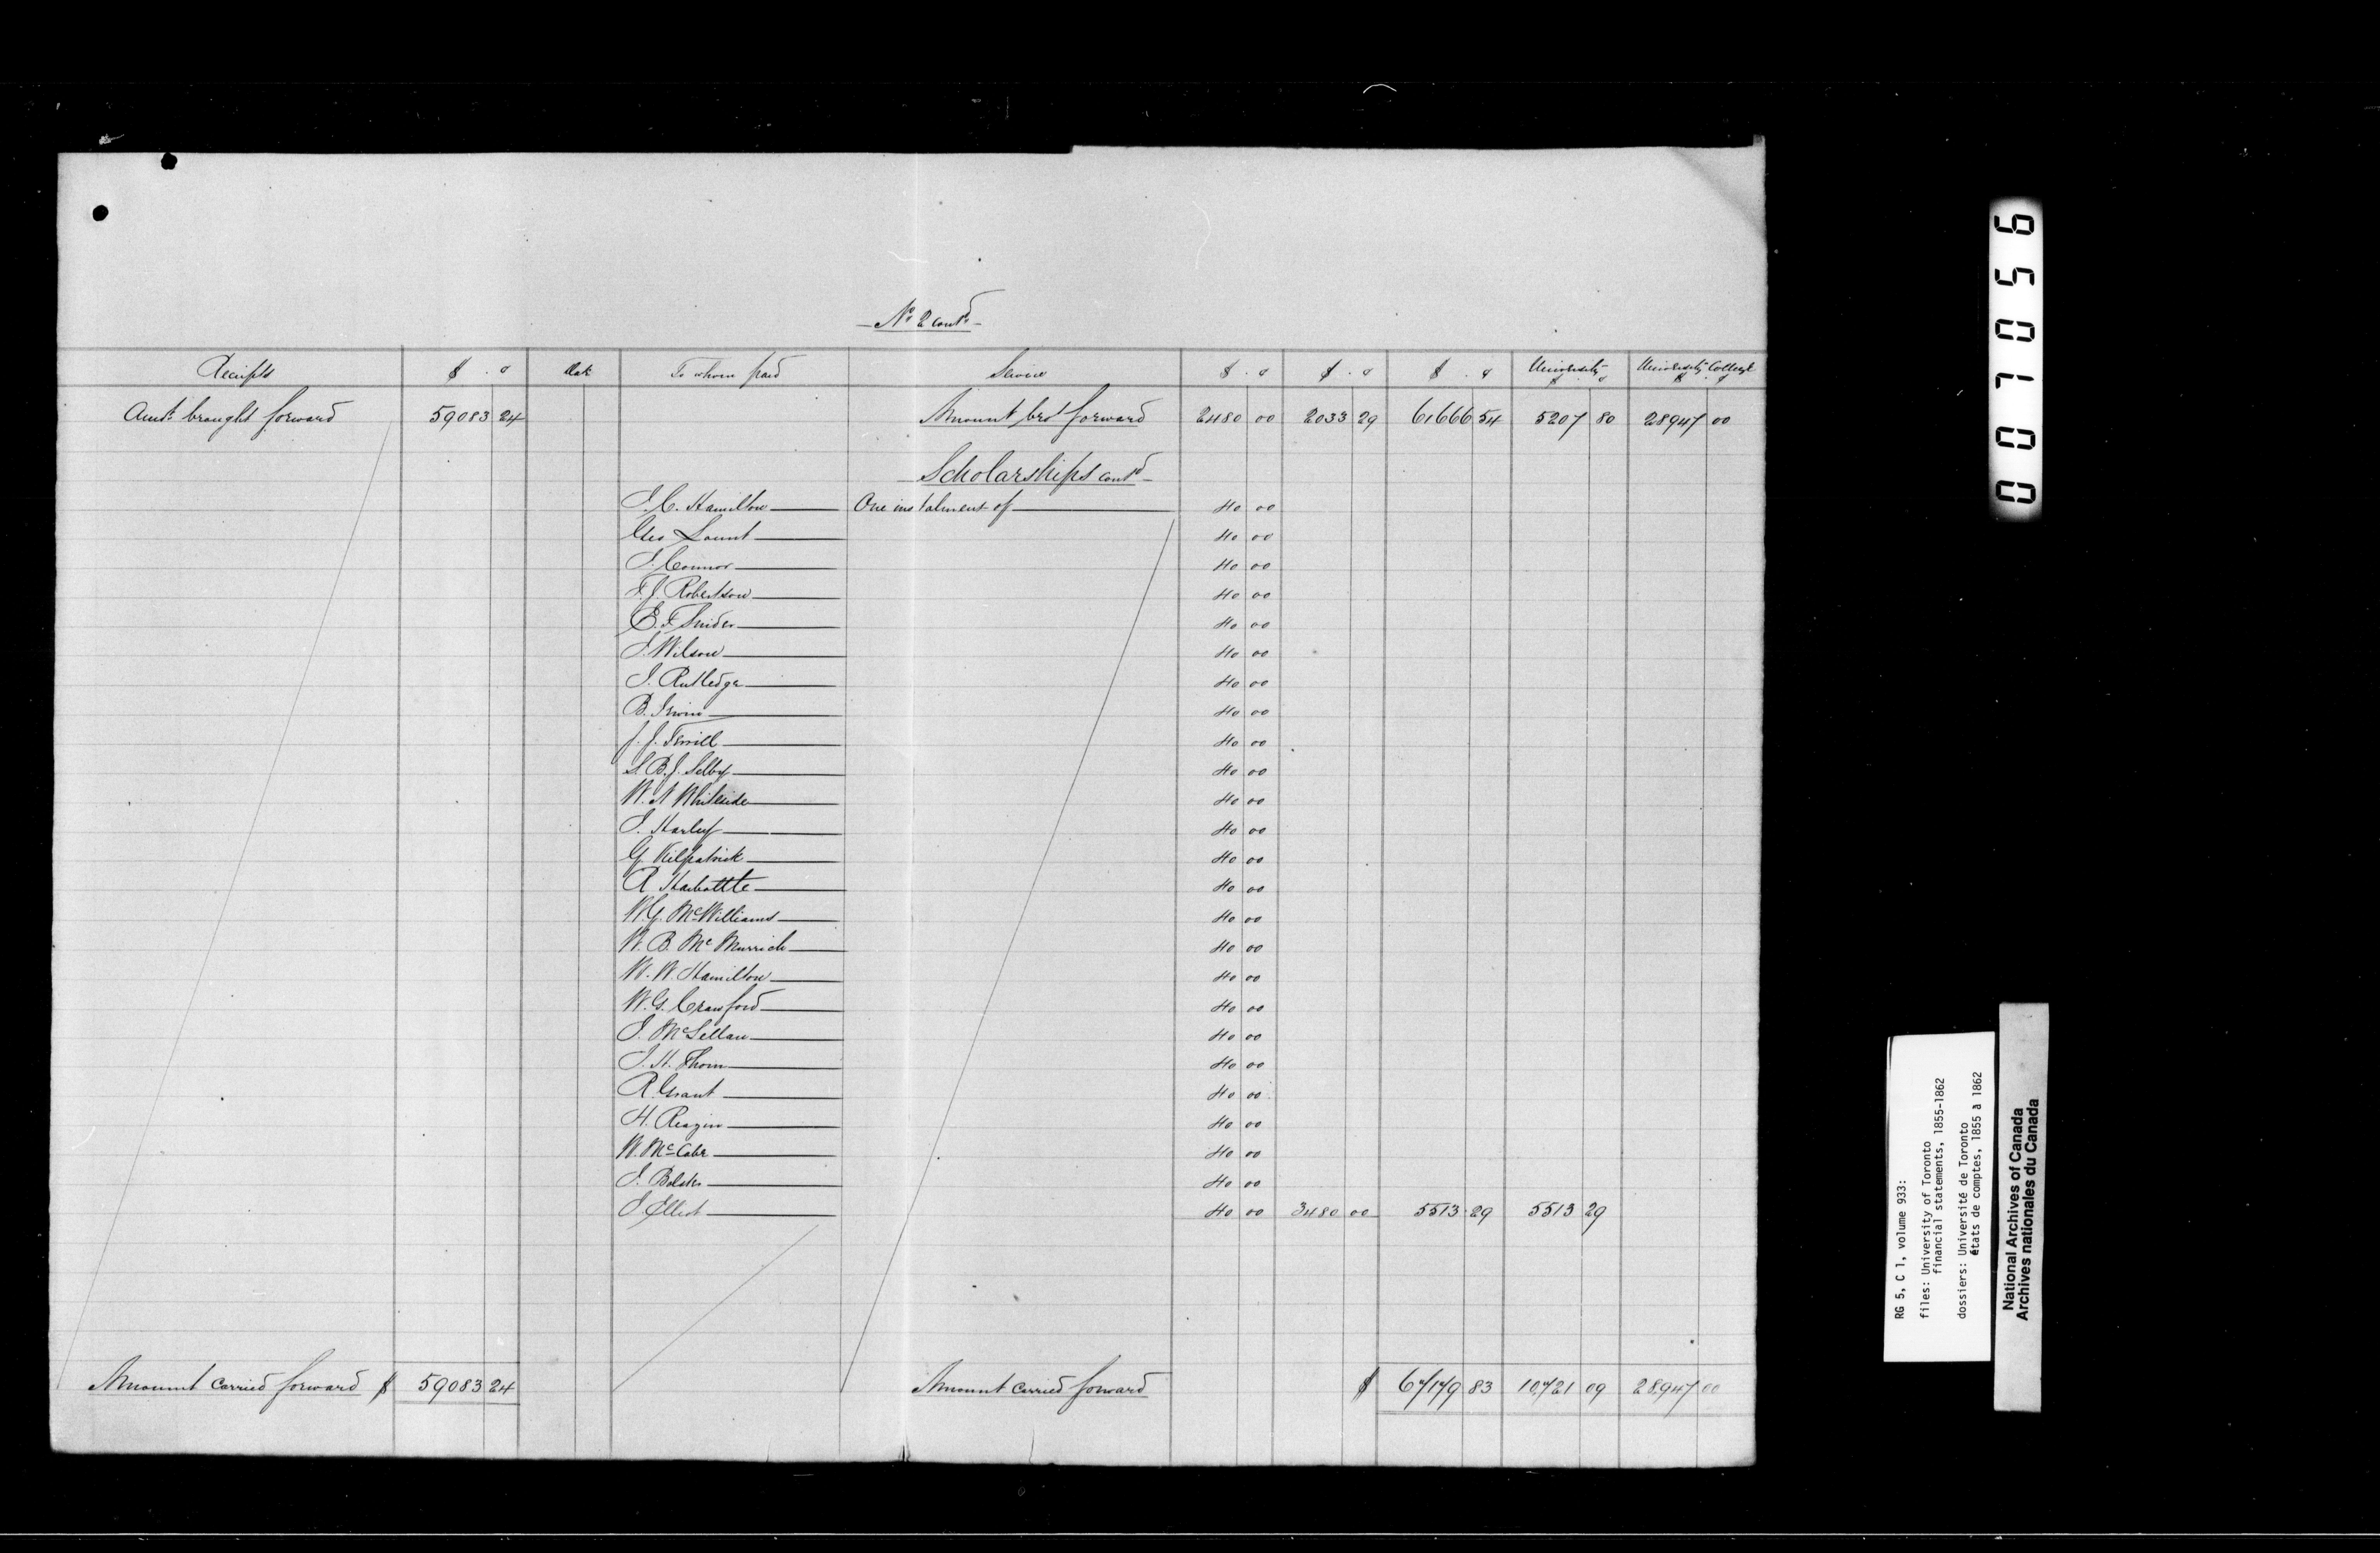 - No 2 contd -
Receipts $ . c Date To whom paid Service $ . c $ . c $ . c University $ . c University College $ . c
Amt. brought forward 59083 24 Amount brot forward 2480 00 2033 29 61666 54 5207 80 28947 00
Scholarships contd -
J. C. Hamilton One instalment of 40 00
Geo Lount 40 00
J. Connor 40 00
T. J. Robertson 40 00
E. F. Snider 40 00
J. Wilson 40 00
J. Rutledge 40 00
B. Irwin 40 00
J. J. Terrill 40 00
S. B. J. Selby 40 00
W. N Whiteside 40 00
J. Harley 40 00
G Kilpatrick 40 00
R Harbottle 40 00
W. G. McWilliams 40 00
W. B. McMurrich 40 00
W. W. Hamilton 40 00
W. G. Crawford 40 00
J. McLellan 40 00
J. H. Thom 40 00
R. Grant 40 00
H. Reazin 40 00
W. McCabe 40 00
J. 40 00
J. Elliot 40 00 3480 00 5513 29 5513 29
Amount carried forward $ 59083 24 Amount carried forward $ 67179 83 10,721 09 28,947 00
007056
RG 5, C 1, volume 933:
files: University of Toronto
financial statements, 1855-1862
dossiers: Université de Toronto
états de comptes, 1855 à 1862
National Archives of Canada
Archives nationales du Canada